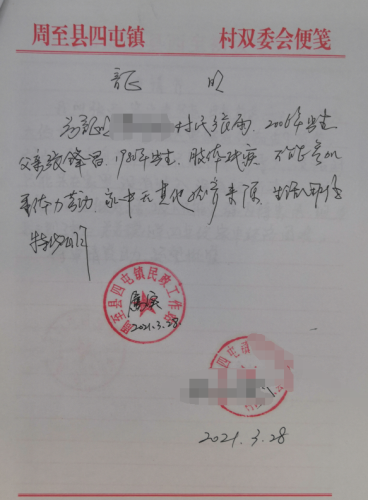 周至县四屯镇 村双委会便笺
证 明
兹证 村民张雨，2006年出生
父亲张锋 ，1980年出生，肢体残疾 不能参加
重体力劳动，家中无其他收入来源 生活困难
特此证明
周至县四屯镇民政工作站
属实
2021.3.28
四屯镇
2021.3.28